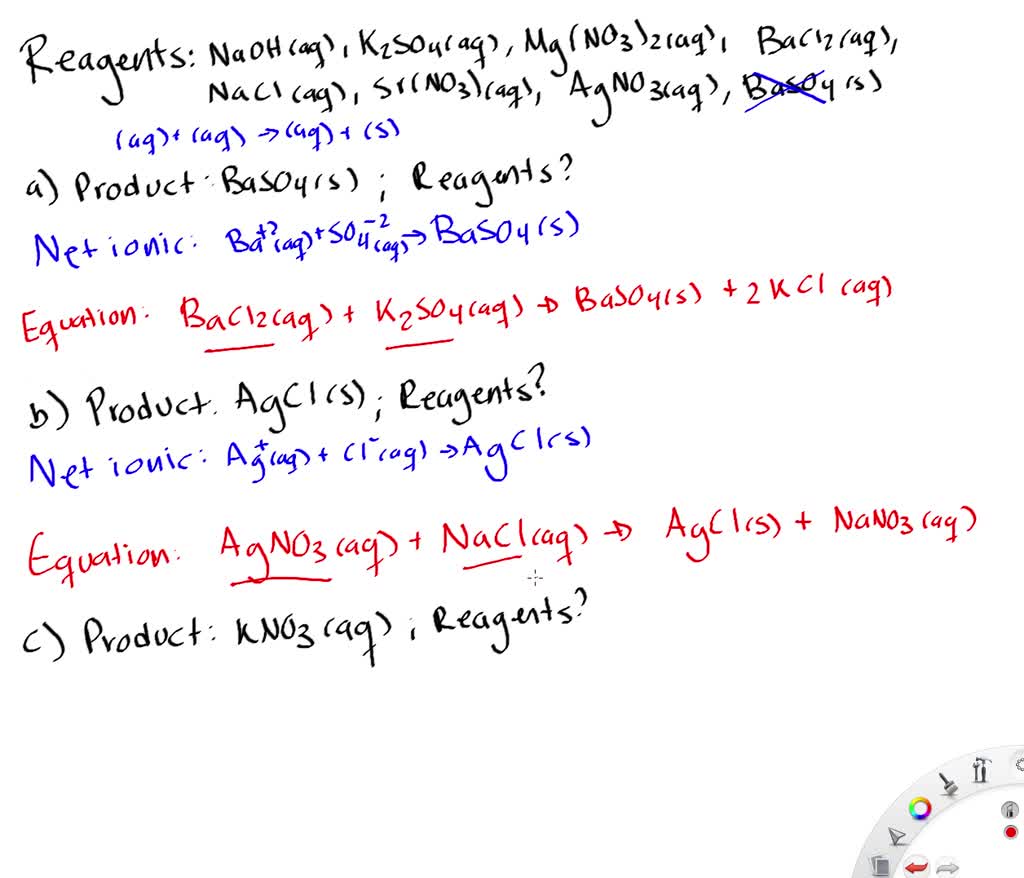 Reagents: NaOH(aq), K2SO4(aq), Mg(NO3)2(aq), BaCl2(aq),
NaCl(aq), Sr(NO3)(aq), AgNO3(aq), BaSO4(s)
(aq)+(aq)→(aq)+(s)
a) Product: BaSO4(s); Reagents?
Net ionic: Ba+2(aq)+SO4-2(aq)→BaSO4(s)
Equation: BaCl2(aq)+K2SO4(aq)→BaSO4(s)+2KCl(aq)
b) Product: AgCl(s); Reagents?
Net ionic: Ag+(aq)+Cl-(aq)→AgCl(s)
Equation: AgNO3(aq)+NaCl(aq)→AgCl(s)+NaNO3(aq)
c) Product: KNO3(aq); Reagents?